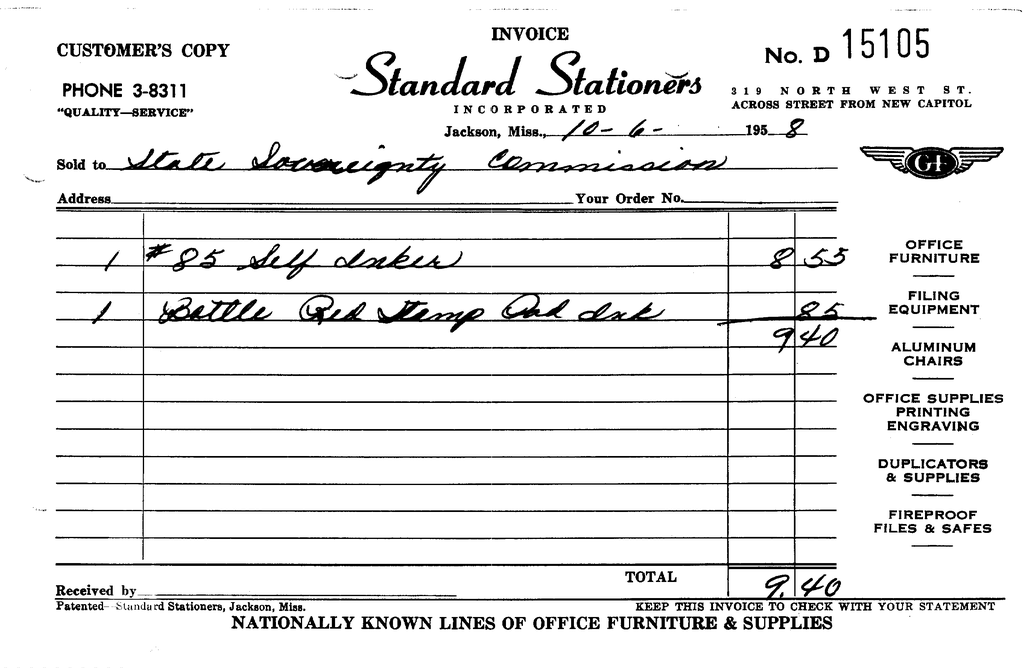 INVOICE
CUSTOMER'S COPY
No. D 15105
Standard Stationers
PHONE 3-8311
319 NORTH WEST ST.
"QUALITY—SERVICE"
INCORPORATED
ACROSS STREET FROM NEW CAPITOL
Jackson, Miss., 10-6- 1958
Sold to State Sovereignty Commission
GF
Address Your Order No.
1 #85 Self Inker 8 55
1 Bottle Red Stamp Pad Ink 85
9 40
OFFICE
FURNITURE
FILING
EQUIPMENT
ALUMINUM
CHAIRS
OFFICE SUPPLIES
PRINTING
ENGRAVING
DUPLICATORS
& SUPPLIES
FIREPROOF
FILES & SAFES
TOTAL 9.40
Received by
Patented—Standard Stationers, Jackson, Miss. KEEP THIS INVOICE TO CHECK WITH YOUR STATEMENT
NATIONALLY KNOWN LINES OF OFFICE FURNITURE & SUPPLIES